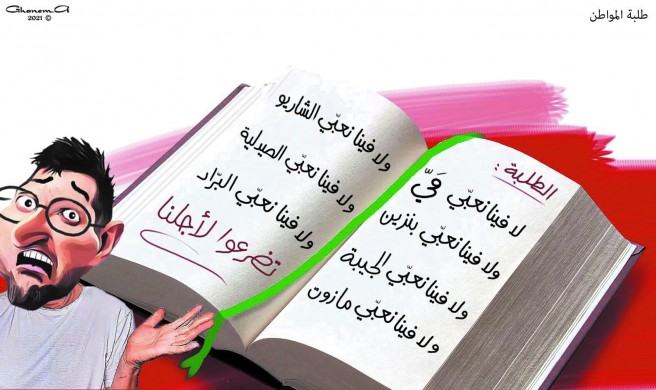 Ghanem.A
2021 ©
طلبة المواطن
الطلبة:
لا فينا نعبّي فَيّ
ولا فينا نعبّي بنزين
ولا فينا نعبّي الجيبة
ولا فينا نعبّي مازوت
ولا فينا نعبّي الشاريو
ولا فينا نعبّي الصيدلية
ولا فينا نعبّي البرّاد
تضرعوا لأجلنا